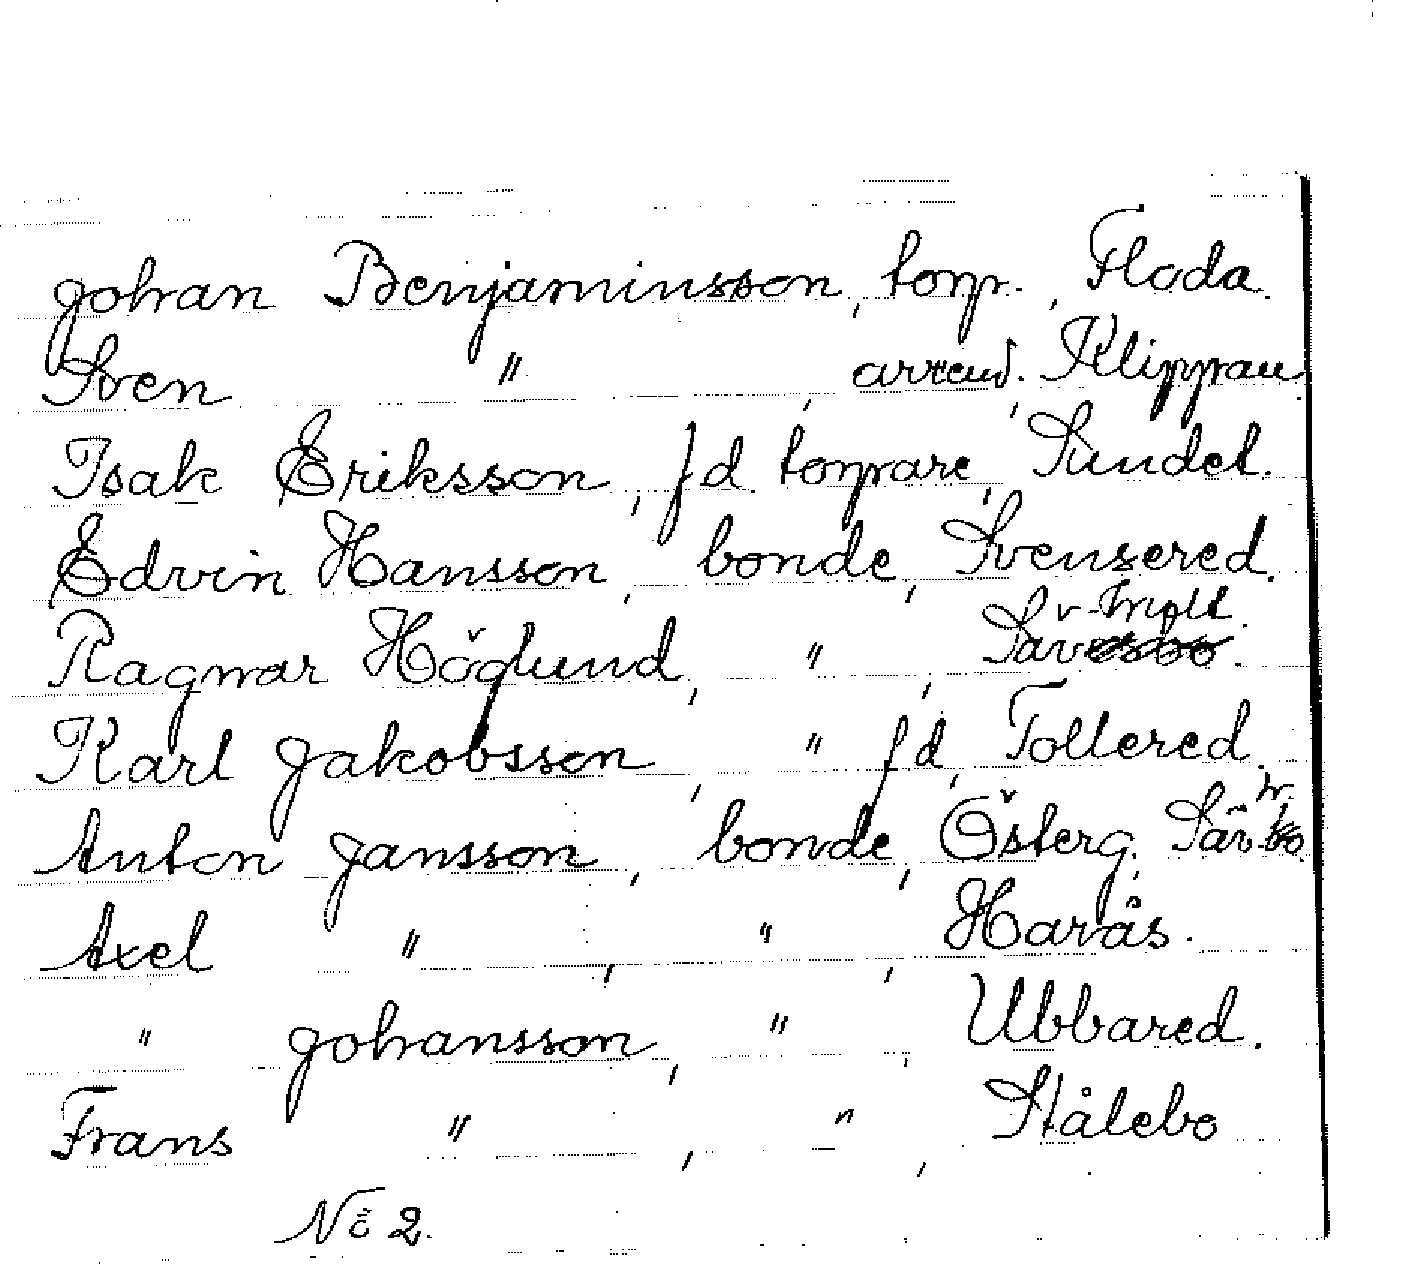 Johan Benjaminsson, torp., Floda.
Sven " , arrend., Klippan.
Isak Eriksson, f d torpare, Sundet.
Edvin Hansson, bonde, Svensered.
Ragnar Höglund, " , Säv
Karl Jakobsson, " f d, Tollered.
Anton Jansson, bonde, Österg, Säv
Axel " , " , Harås.
" Johansson, " , Ubbared.
Frans " , " , Stålebo
No 2.